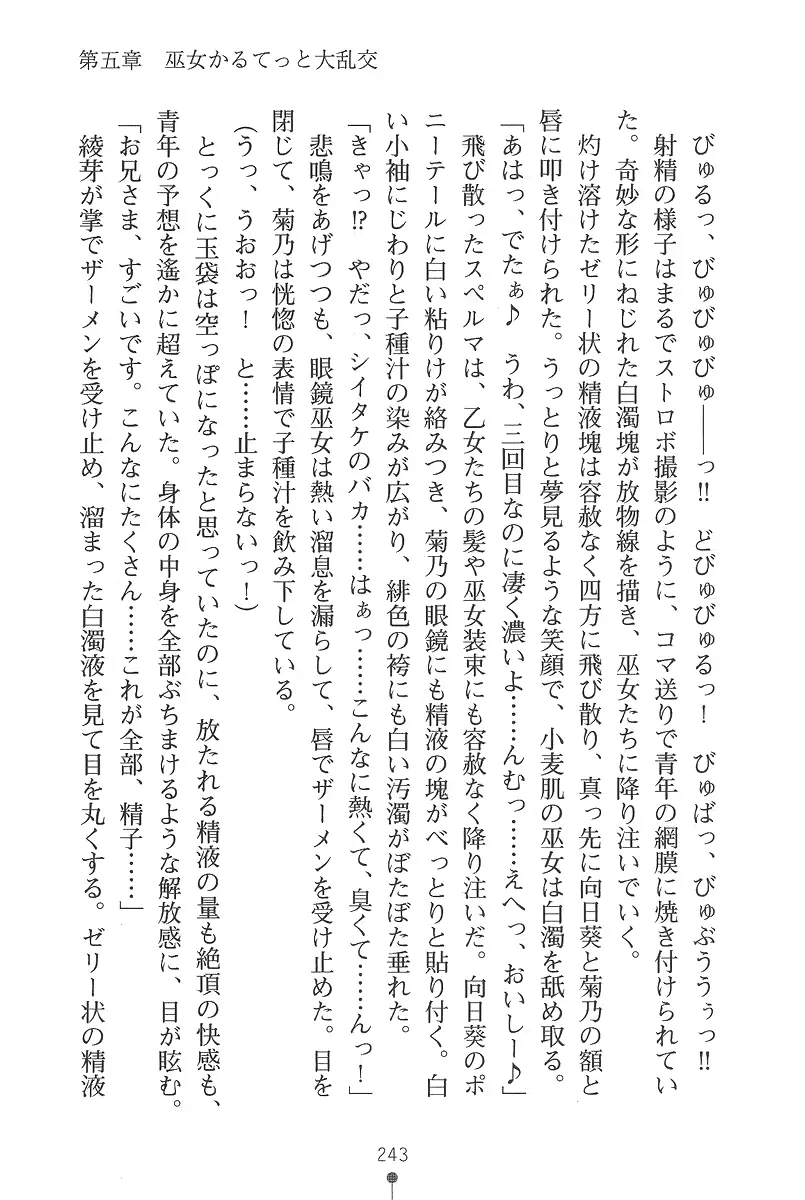 第五章　巫女かるてっと大乱交
びゅるっ、びゅびゅびゅ――っ!!　どびゅびゅるっ！　びゅばっ、びゅぶううぅっ!!
射精の様子はまるでストロボ撮影のように、コマ送りで青年の網膜に焼き付けられてい
た。奇妙な形にねじれた白濁塊が放物線を描き、巫女たちに降り注いでいく。
灼け溶けたゼリー状の精液塊は容赦なく四方に飛び散り、真っ先に向日葵と菊乃の額と
唇に叩き付けられた。うっとりと夢見るような笑顔で、小麦肌の巫女は白濁を舐め取る。
「あはっ、でたぁ♪　うわ、三回目なのに凄く濃いよ……んむっ……えへっ、おいしー♪」
飛び散ったスペルマは、乙女たちの髪や巫女装束にも容赦なく降り注いだ。向日葵のポ
ニーテールに白い粘りけが絡みつき、菊乃の眼鏡にも精液の塊がべっとりと貼り付く。白
い小袖にじわりと子種汁の染みが広がり、緋色の袴にも白い汚濁がぼたぼた垂れた。
「きゃっ!?　やだっ、シイタケのバカ……はぁっ……こんなに熱くて、臭くて……んっ！」
悲鳴をあげつつも、眼鏡巫女は熱い溜息を漏らして、唇でザーメンを受け止めた。目を
閉じて、菊乃は恍惚の表情で子種汁を飲み下している。
(うっ、うおおっ！　と……止まらないっ！)
とっくに玉袋は空っぽになったと思っていたのに、放たれる精液の量も絶頂の快感も、
青年の予想を遙かに超えていた。身体の中身を全部ぶちまけるような解放感に、目が眩む。
「お兄さま、すごいです。こんなにたくさん……これが全部、精子……」
綾芽が掌でザーメンを受け止め、溜まった白濁液を見て目を丸くする。ゼリー状の精液
243